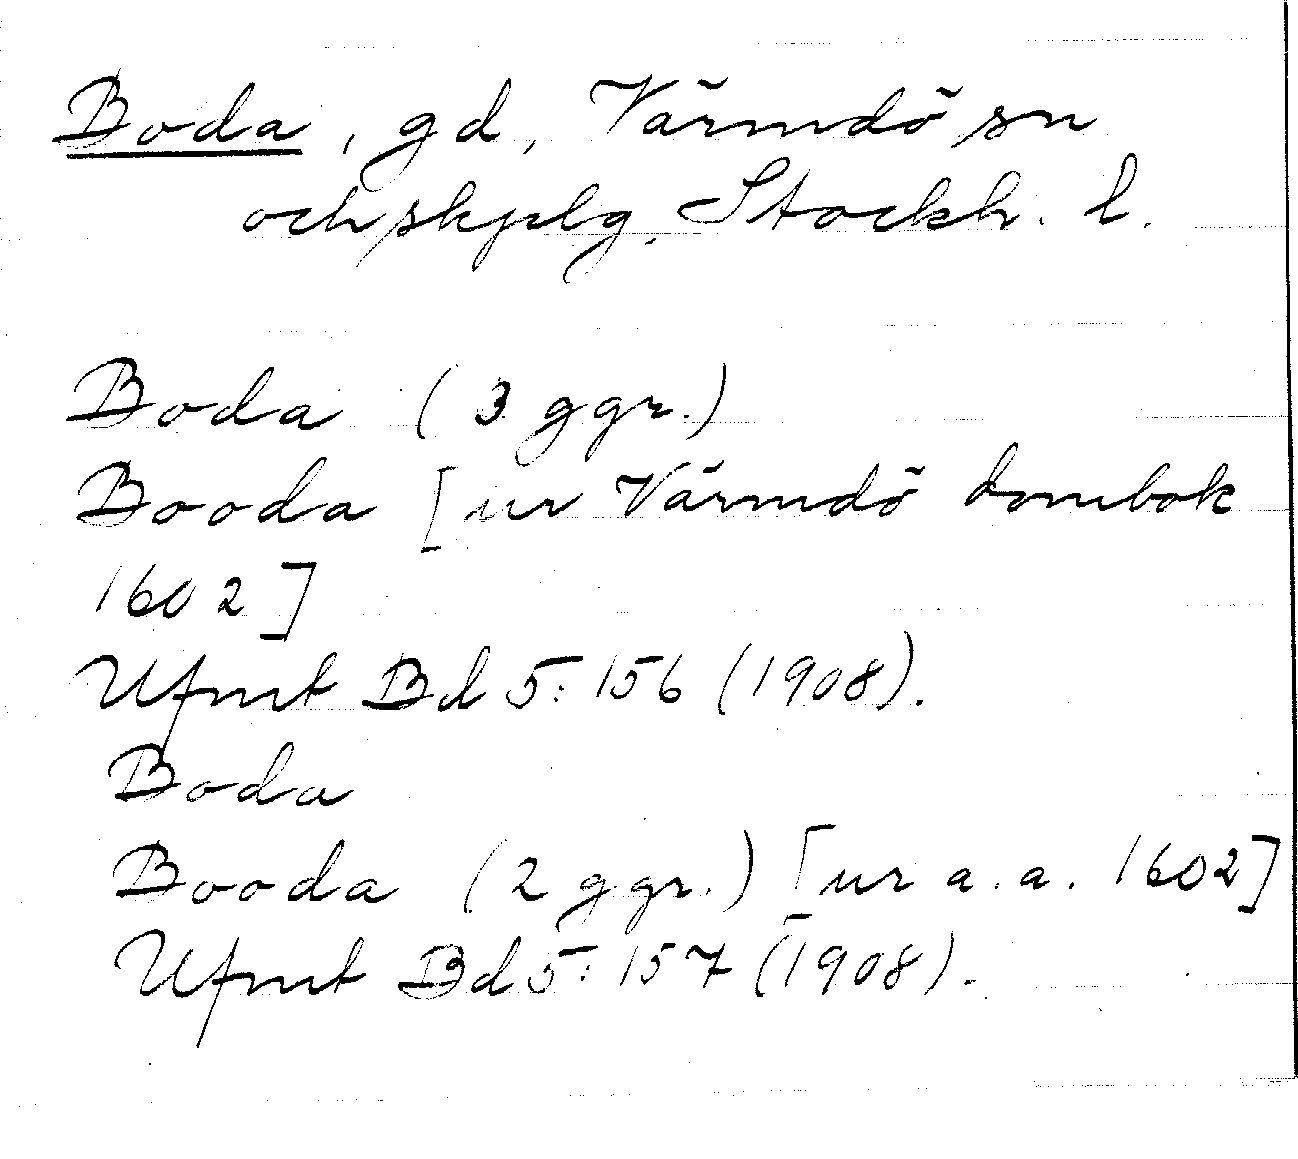 Boda, gd, Värmdö sn
och skplg. Stockh. l.
Boda (3 ggr.)
Booda [ur Värmdö dombok
1602]
Ufmt Bd 5: 156 (1908).
Boda
Booda (2 ggr.) [ur a.a. 1602]
Ufmt Bd 5: 157 (1908).